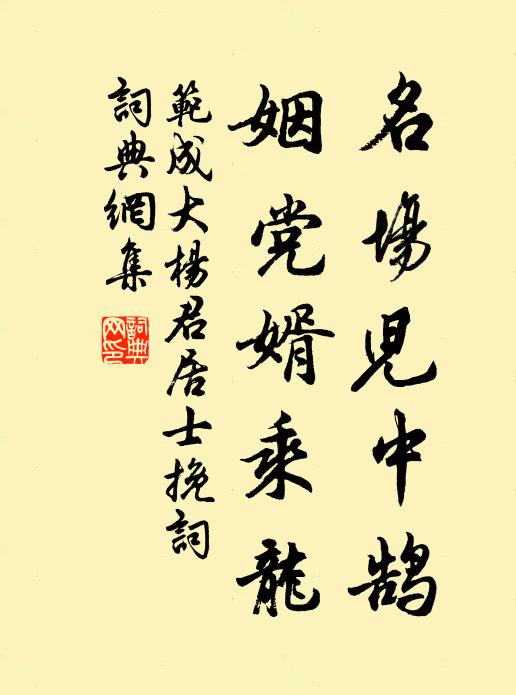 名場児中鹄
姻党婿乘龍
範成大楊君居士挽詞
詞典網集
詞典网印